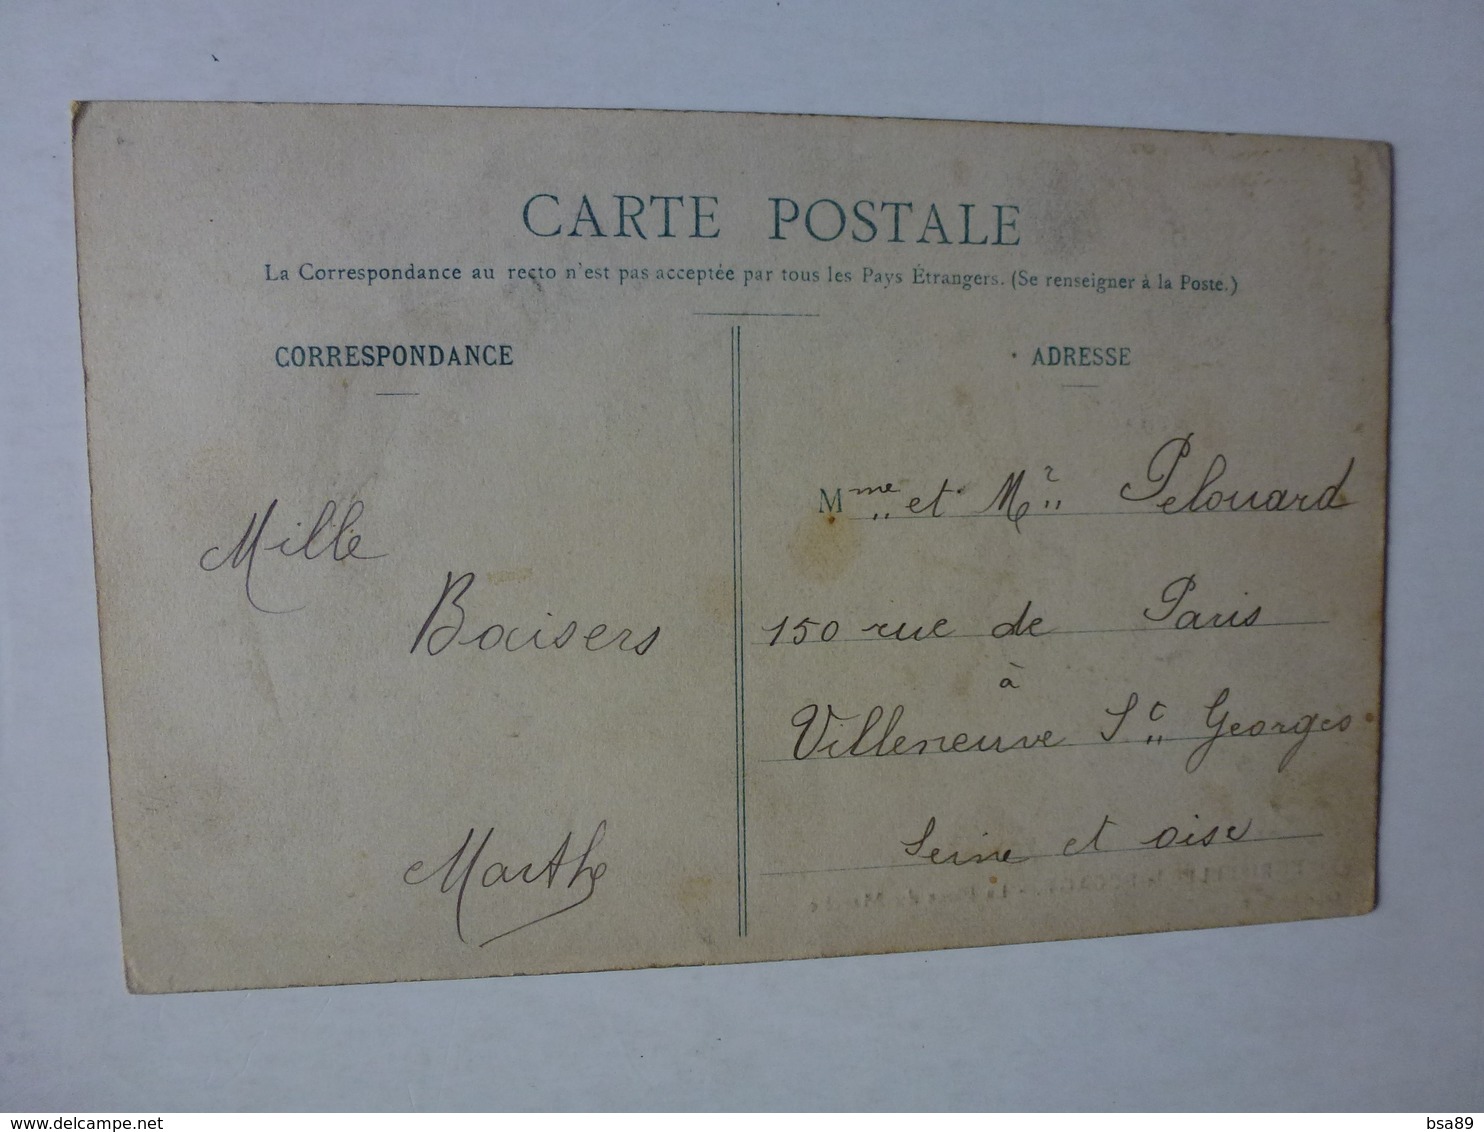 CARTE POSTALE
La Correspondance au recto n'est pas acceptée par tous les Pays Étrangers. (Se renseigner à la Poste.)
CORRESPONDANCE
Mille
Baisers
Marthe
ADRESSE
Mme et Mr Pelouard
150 rue de Paris
à
Villeneuve St Georges
Seine et oise
bsa89